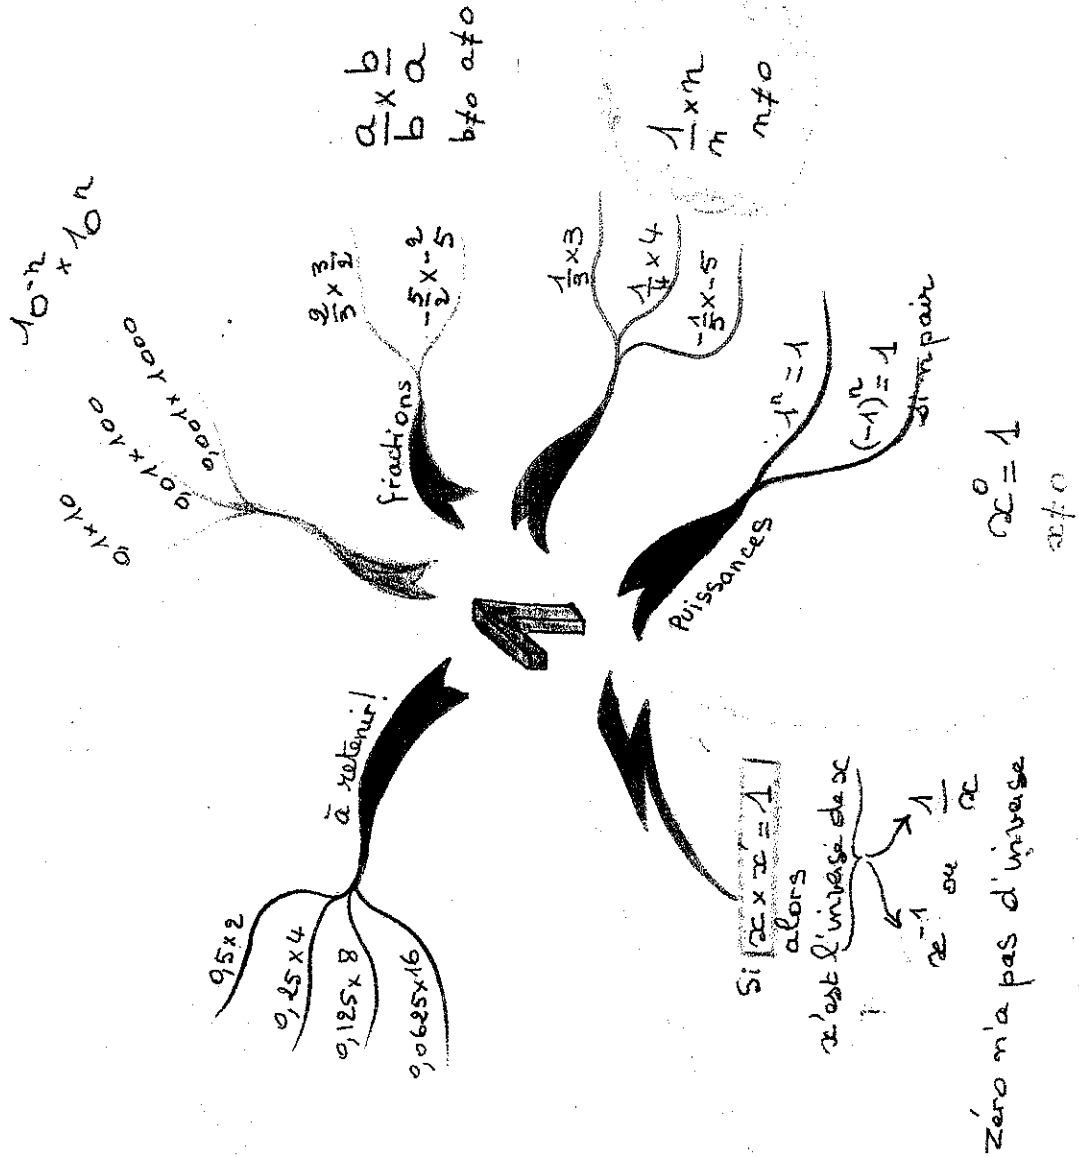 à retenir!
0,5×2
0,25×4
0,125×8
0,0625×16
0,1×10
0,01×100
0,001×1000
10⁻ⁿ×10ⁿ
fractions
2/3 × 3/2
-5/2 × -2/5
a/b × b/a
b≠0 a≠0
1/3 × 3
1/4 × 4
-1/5 × -5
1/n × n
n≠0
Puissances
1ⁿ = 1
(-1)ⁿ = 1
si n pair
x⁰ = 1
x≠0
1
Si x × x' = 1
alors
x' est l'inverse de x
x⁻¹ ou 1/x
Zéro n'a pas d'inverse